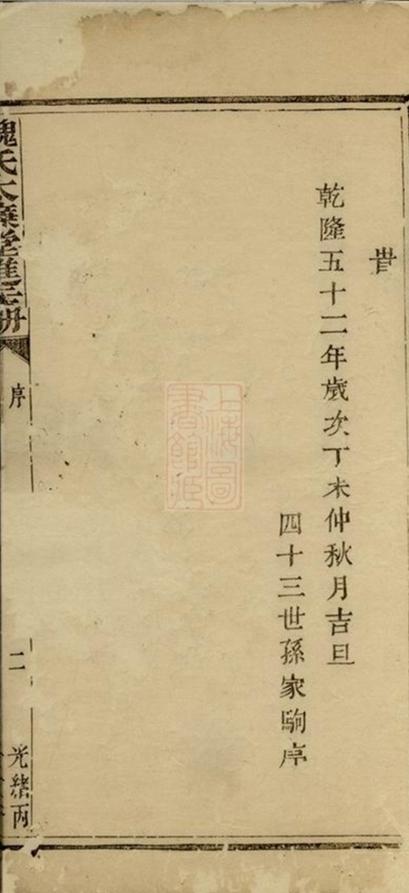 昔
乾隆五十二年歲次丁未仲秋月吉旦
四十三世孫家駒序
上海圖
書館藏
序
二
光緒丙